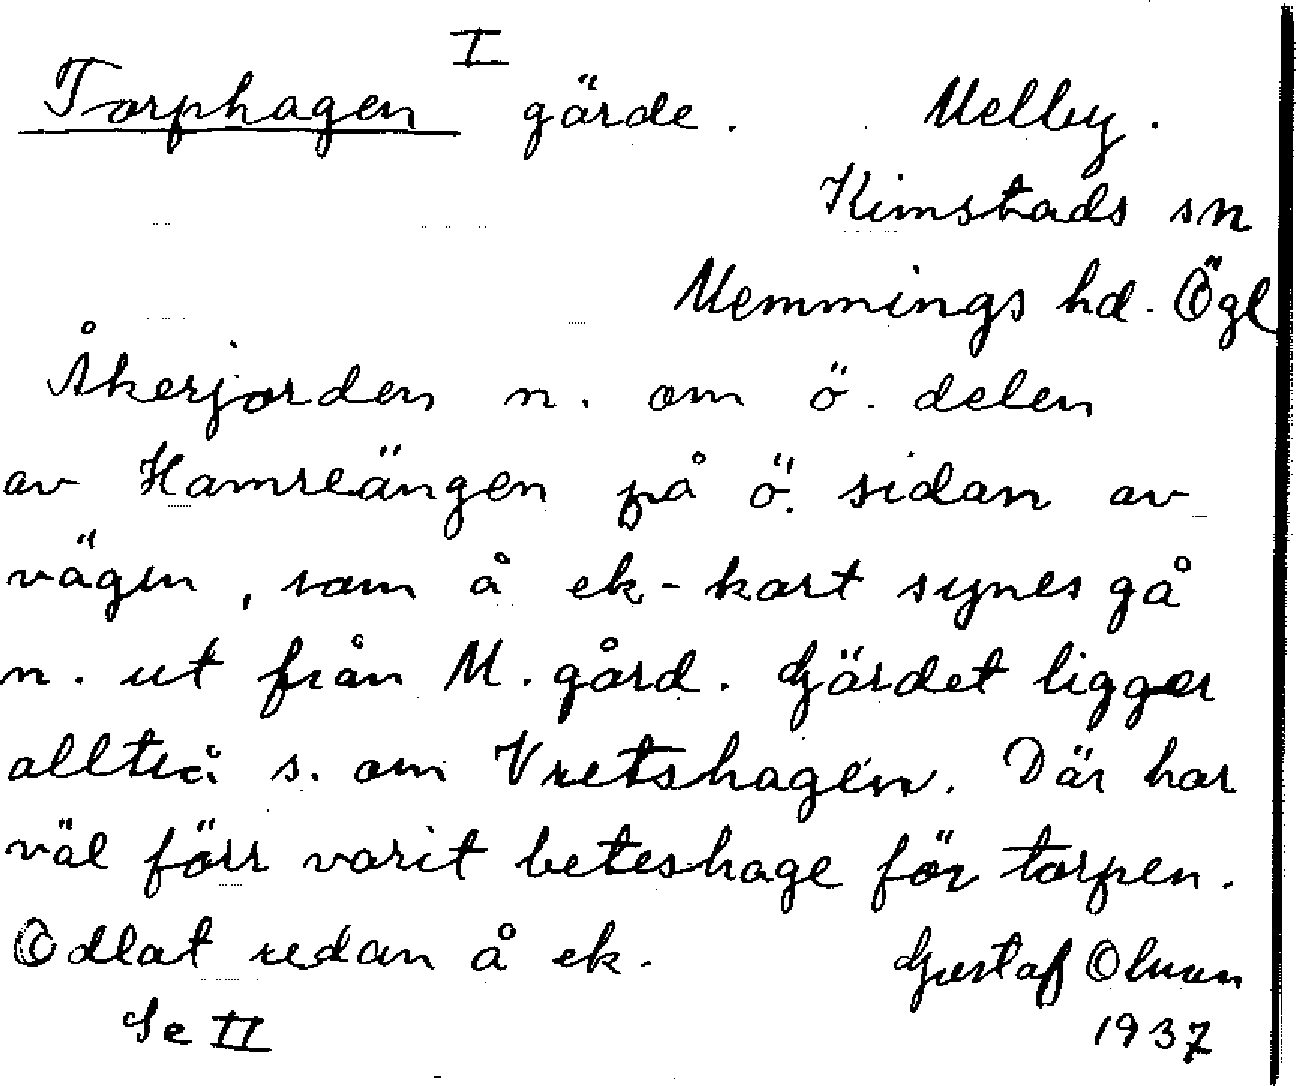 I
Torphagen gärde. Melby.
Kimstads sn
Memmings hd. Ögl
Åkerjorden n. om ö. delen
av Hamreängen på ö. sidan av
vägen, som å ek-kart synes gå
n. ut från M. gård. Gärdet ligger
alltså s. om Vretshagen. Där har
väl förr varit beteshage för torpen.
Odlat redan å ek. Gustaf Olsson
Se II 1937